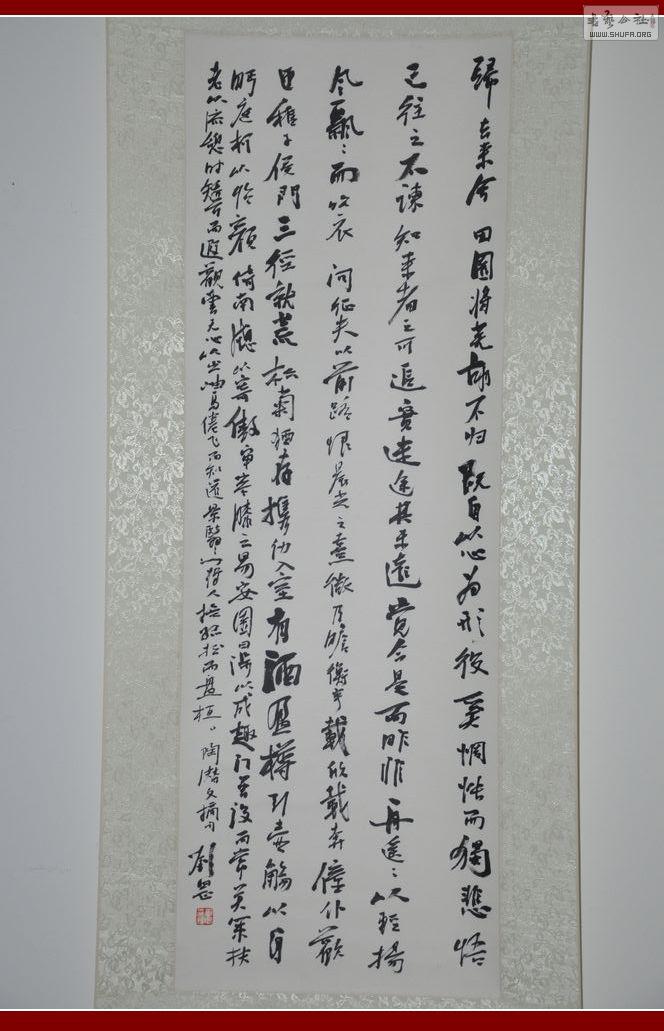 歸去来兮田園将荒胡不归既自以心为形役奚惆悵而獨悲悟
已往之不諫知来者之可追實迷途其未遠觉今是而昨非舟遥々以轻揚
风飘々而吹衣问征夫以前路恨晨光之熹微乃瞻衡宇載欣載奔僮仆歡
迎稚子候門三徑就荒松菊猶存携幼入室有酒盈樽引壶觞以自
眄庭柯以怡颜倚南牕以寄傲审容膝之易安園日涉以成趣门虽设而常关策扶
老以流憩时矯首而遐觀雲无心以出岫鸟倦飞而知還景翳々以将入撫孤松而盘桓。陶潜文摘句 劉
书艺公社
WWW.SHUFA.ORG